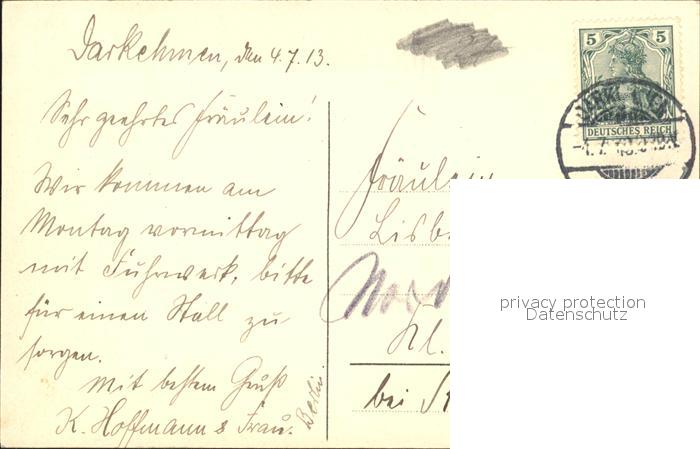 Darkehmen, den 4.7.13.
Sehr geehrtes Fräulein!
Wir kommen am
Montag vormittag
mit Fuhrwerk, bitte
für einen Stall zu
sorgen.
Mit bestem Gruß
K. Hoffmann & Frau.
Berlin
5 5
DEUTSCHES REICH
Fräulein
Kl.
bei
privacy protection
Datenschutz